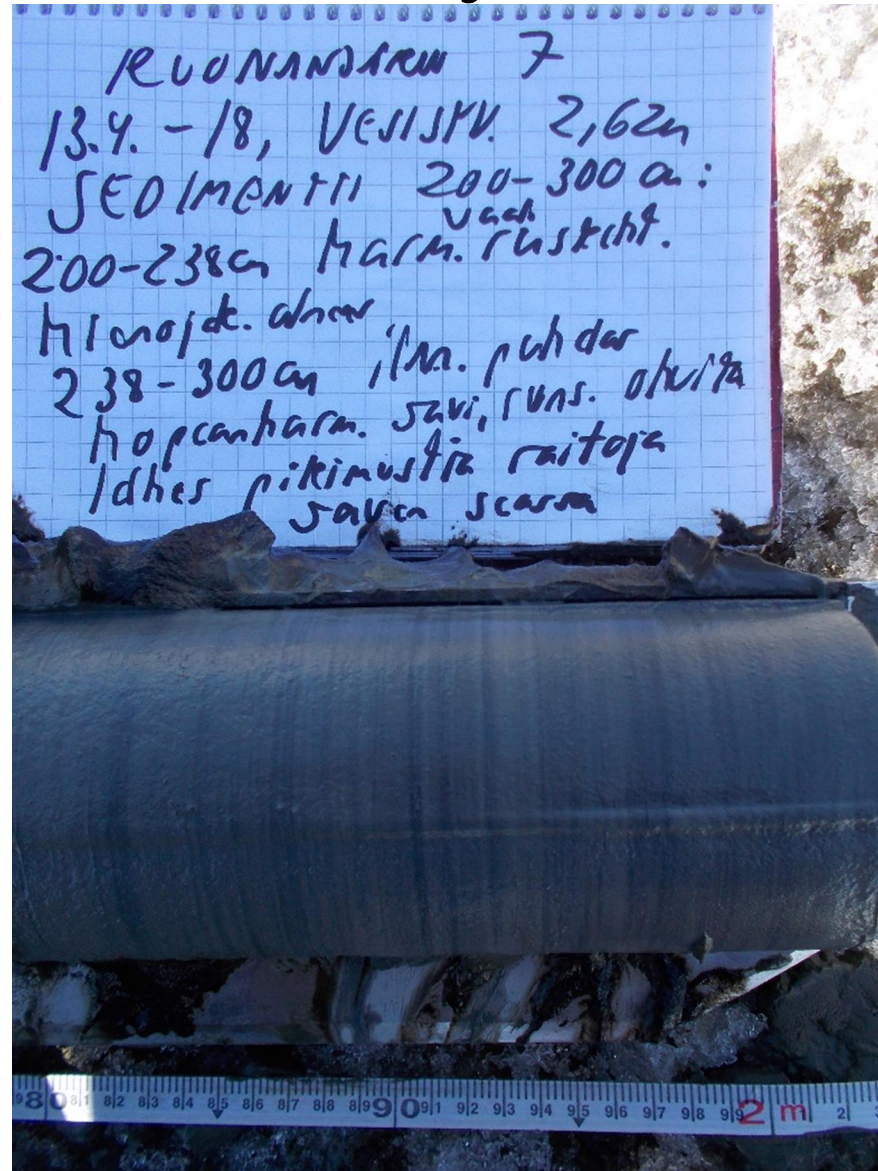 KUONANJÄRVI 7
13.4. -18, VESISYV. 2,62m
SEDIMENTTI 200-300 cm:
vaal.
200-238cm harm. ruskeht.
238-300 cm ilm. puhdas
hopeanharm. savi, runs. ohuita
lähes pikimustia raitoja
saven seassa
80 81 82 83 84 85 86 87 88 89 90 91 92 93 94 95 96 97 98 99 2m